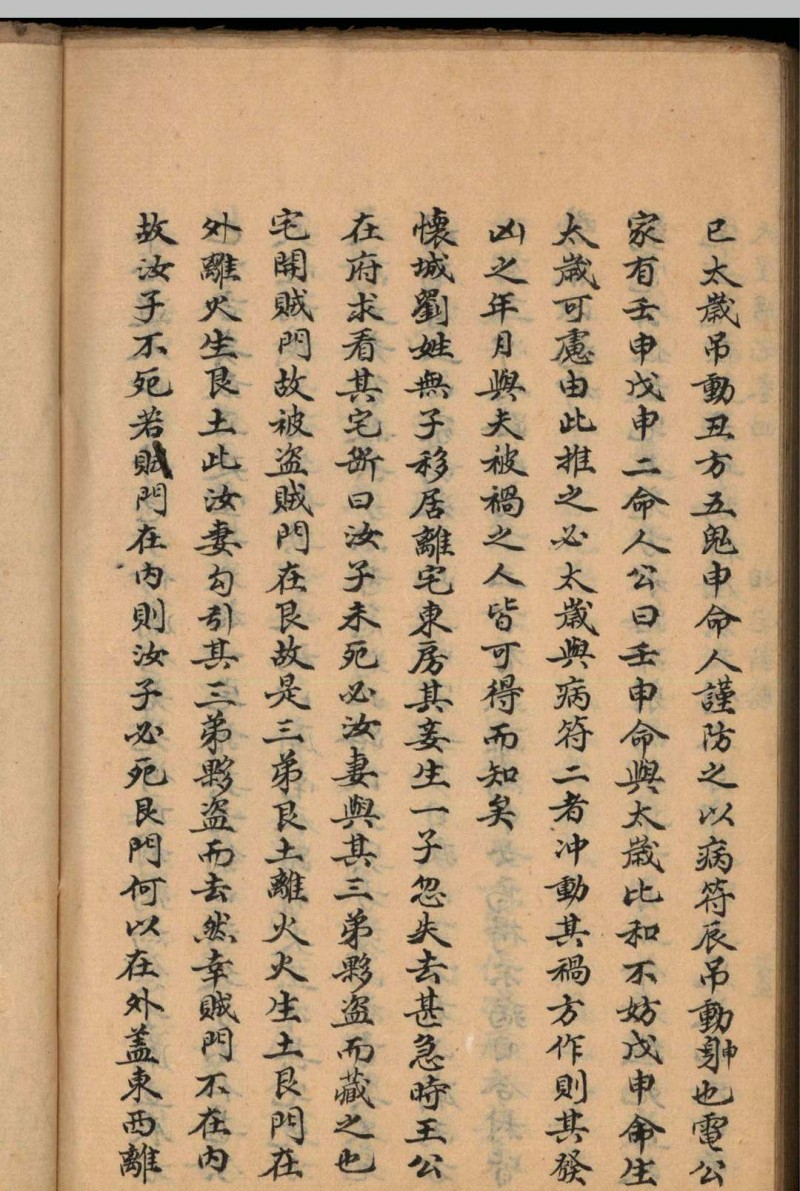 已太歲吊動丑方五鬼申命人謹防之以病符辰吊動申也電公
家有壬申戊申二命人公曰壬申命與太歲比和不妨戊申命生
太歲可慮由此推之必太歲與病符二者冲動其禍方作則其發
凶之年月與夫被禍之人皆可得而知矣
懷城劉姓無子移居離宅東房其妾生一子忽失去甚急時王公
在府求看其宅斷曰汝子未死必汝妻與其三弟夥盜而藏之也
宅開賊門故被盜賊門在艮故是三弟艮土離火火生土艮門在
外離火生艮土此汝妻勾引其三弟夥盜而去然幸賊門不在内
故汝子不死若賊門在内則汝子必死艮門何以在外盖東西離